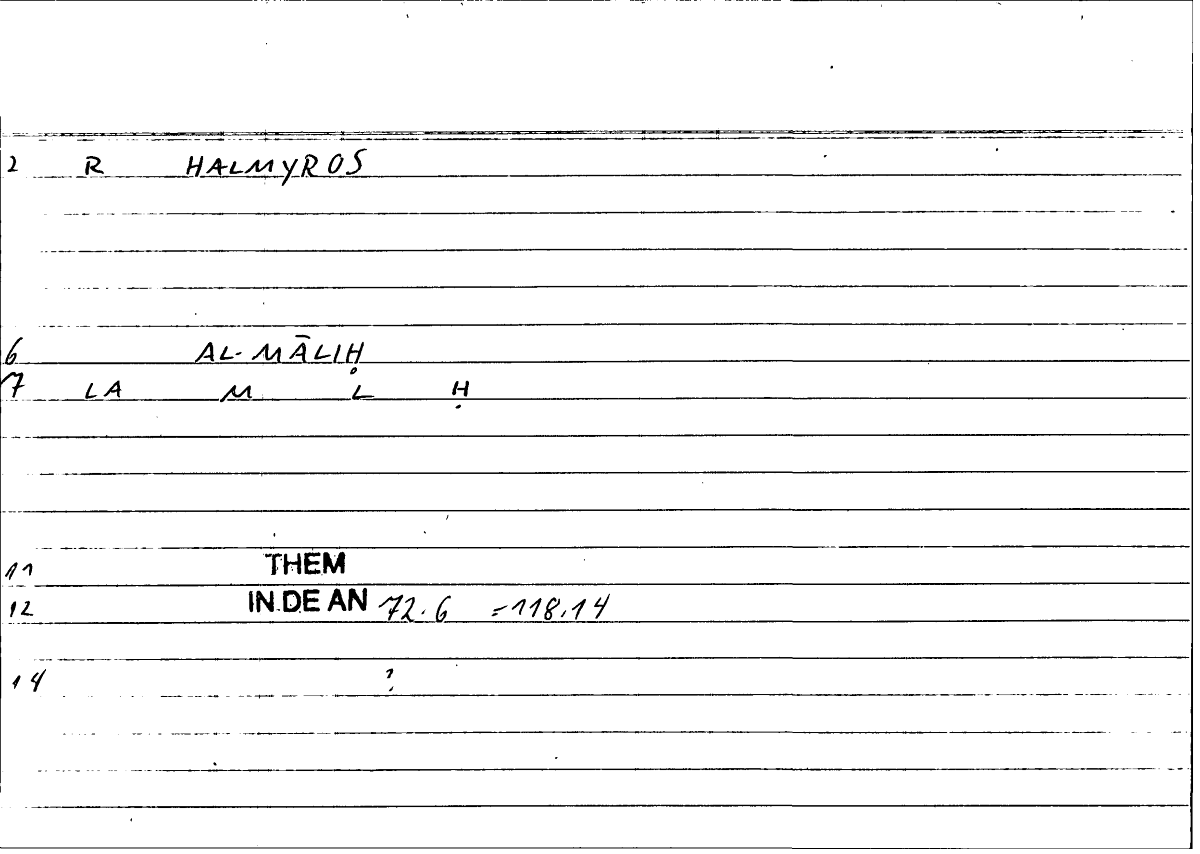 2 R HALMYROS
6 AL-MĀLIḤ
7 LA M L Ḥ
11 THEM
12 IN.DE AN 72.6 =118.14
14 ?